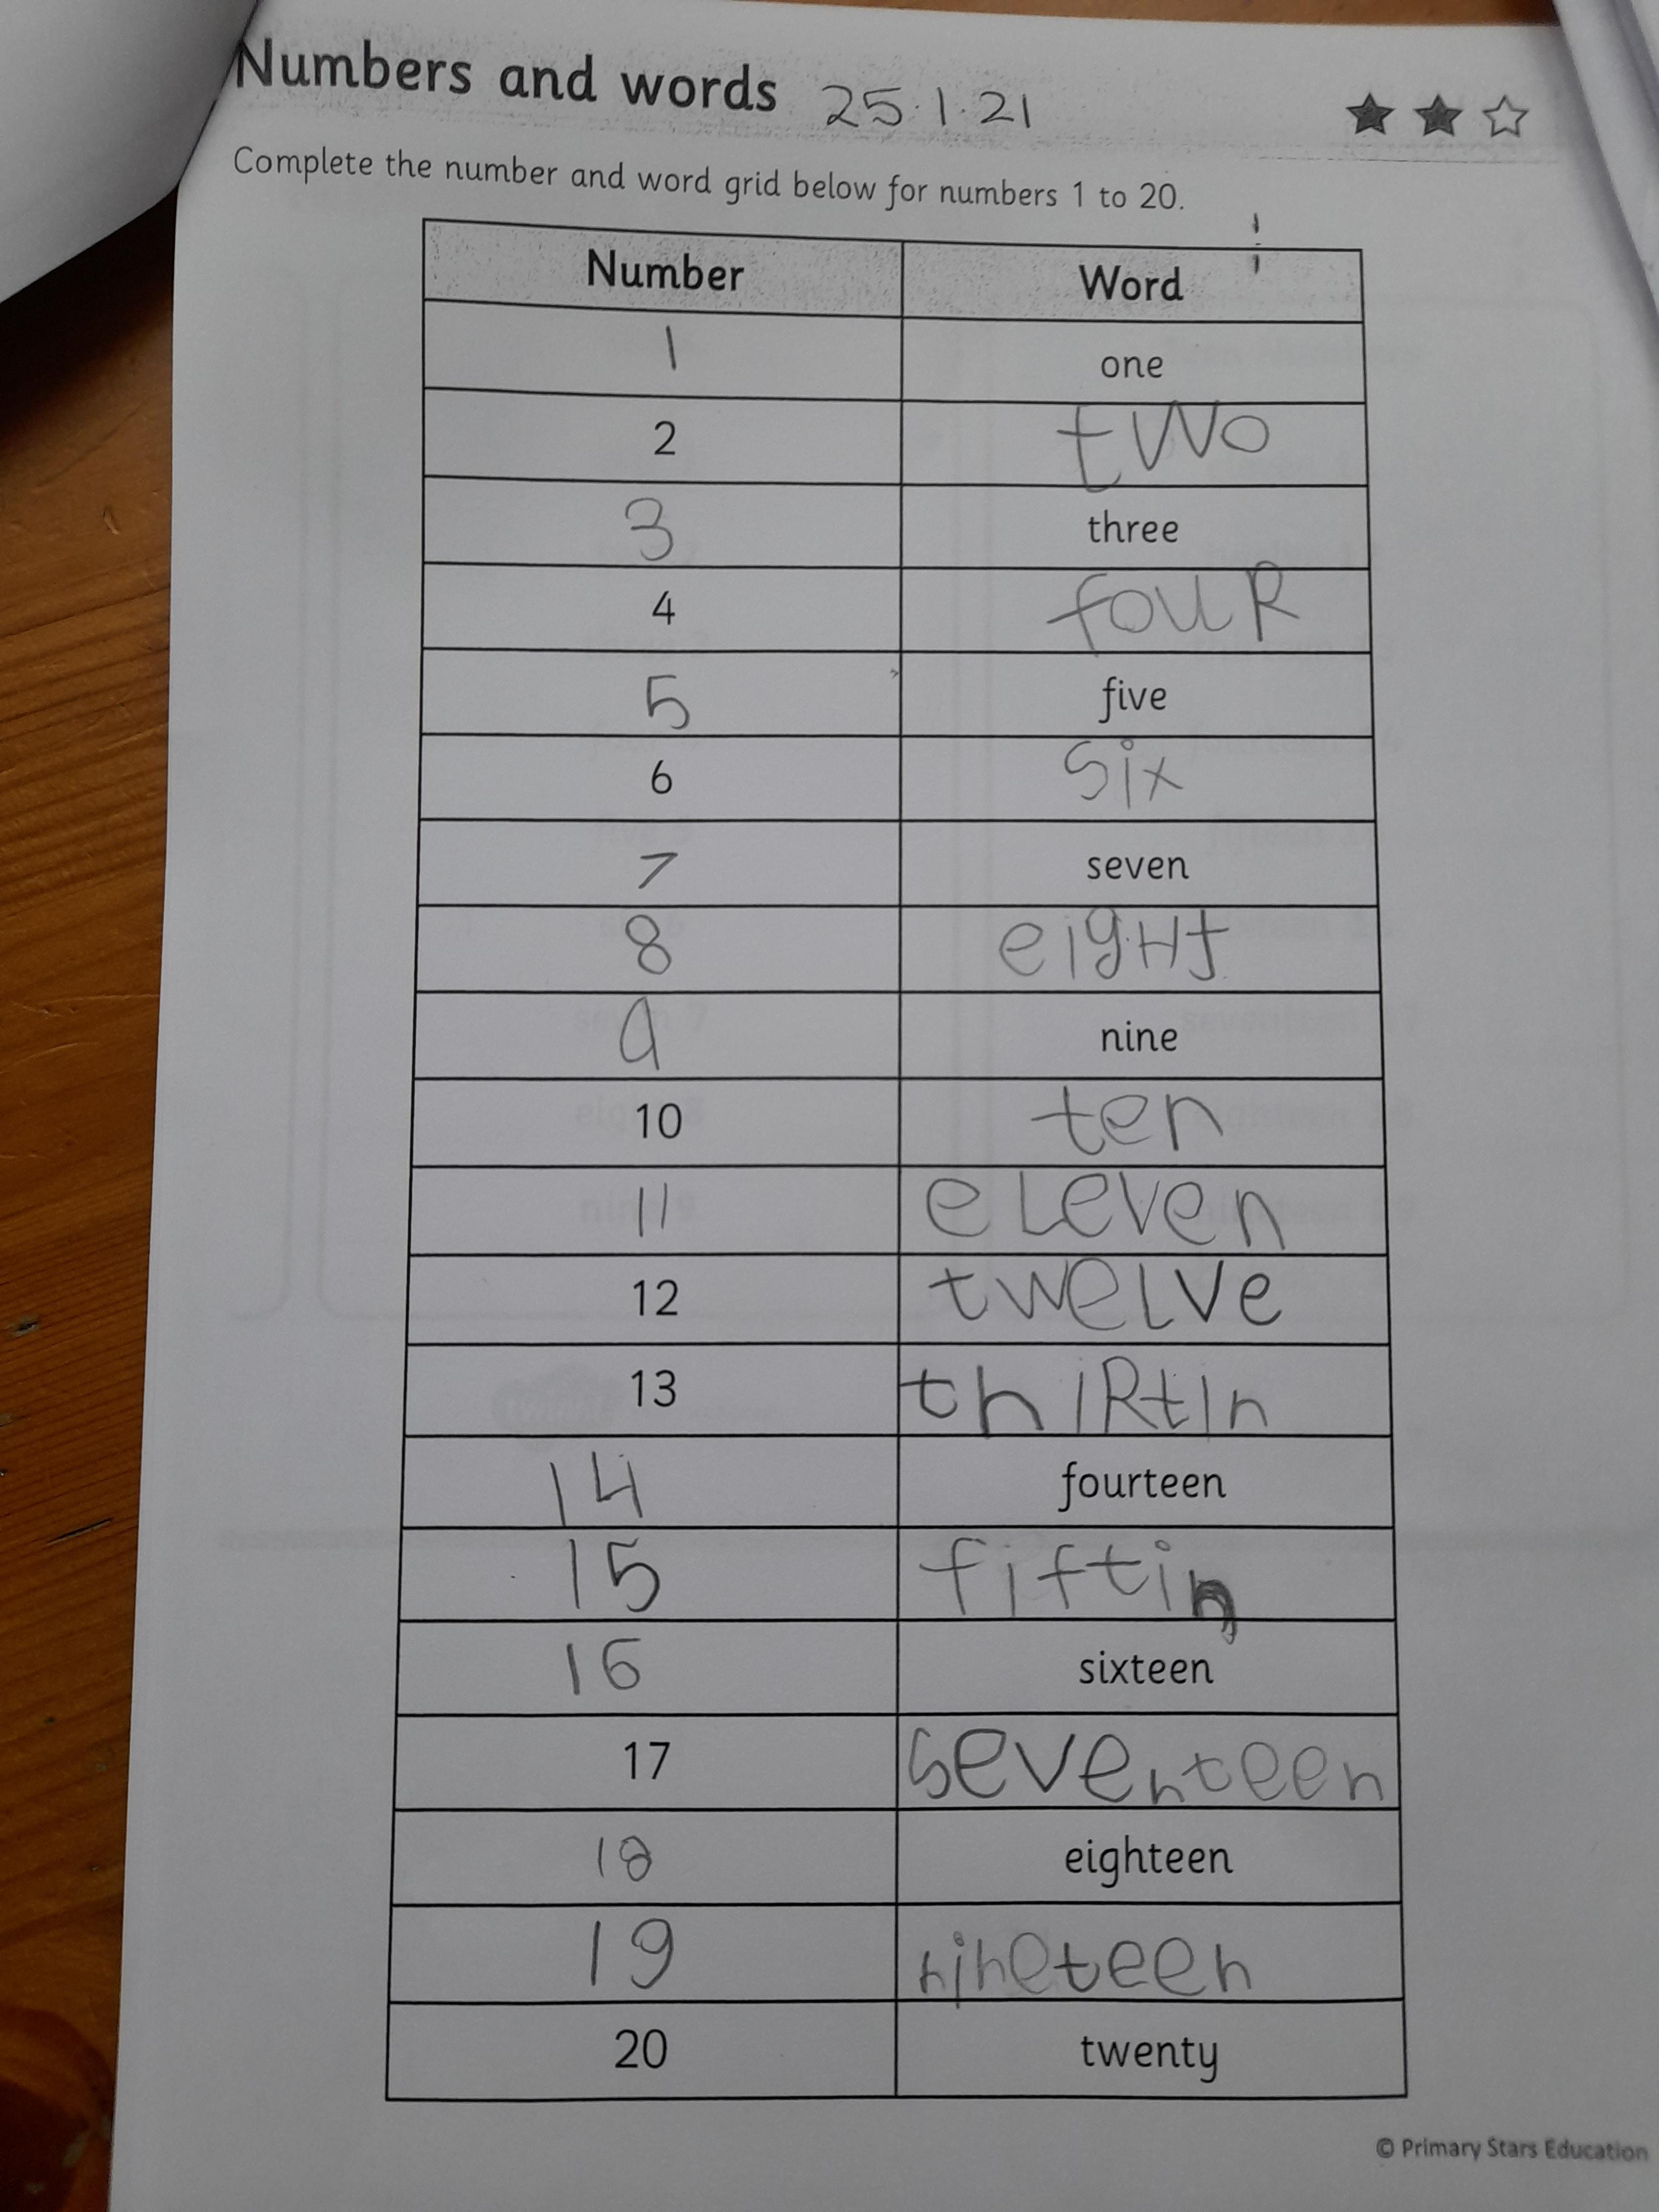 Numbers and words 25.1.21
Complete the number and word grid below for numbers 1 to 20.
Number Word
1 one
2 two
3 three
4 fouR
5 five
6 six
7 seven
8 eigHt
9 nine
10 ten
11 eLeven
12 twelve
13 thiRtin
14 fourteen
15 fiftin
16 sixteen
17 seventeen
18 eighteen
19 nineteen
20 twenty
© Primary Stars Education